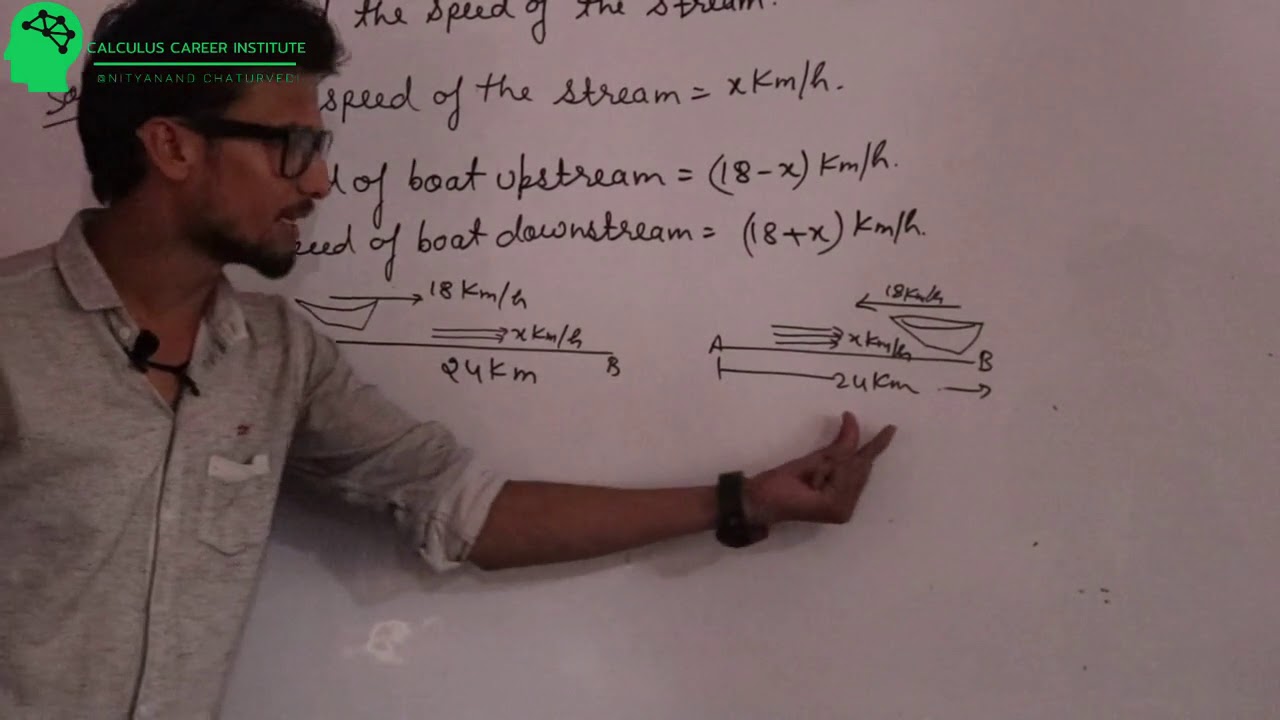 the speed of the stream.
CALCULUS CAREER INSTITUTE
@NITYANAND CHATURVEDI
speed of the stream = x Km/h.
of boat upstream = (18-x) Km/h.
of boat downstream = (18+x) Km/h.
18 Km/h
x Km/h
B
24 Km
18 Km/h
A
x Km/h
B
24 Km